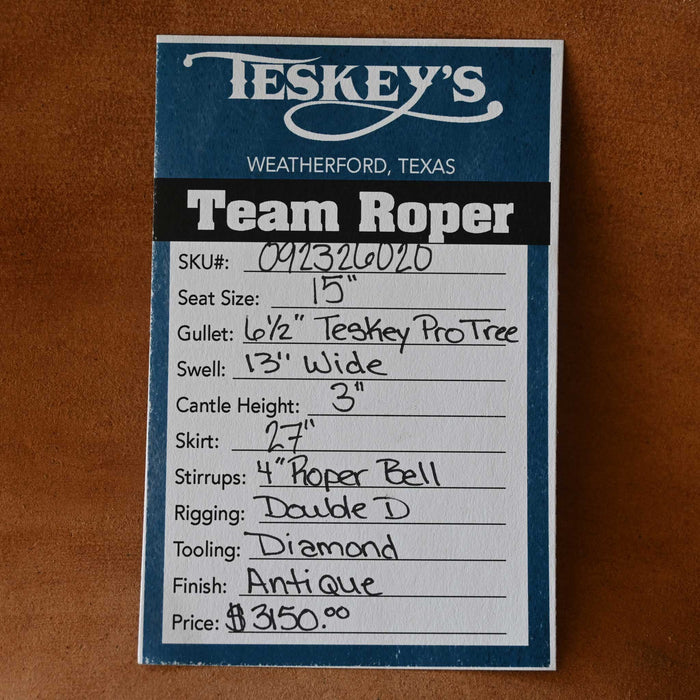 TESKEY'S
WEATHERFORD, TEXAS
Team Roper
SKU#: 092326020
Seat Size: 15"
Gullet: 6 1/2" Teskey Pro Tree
Swell: 13" Wide
Cantle Height: 3"
Skirt: 27"
Stirrups: 4" Roper Bell
Rigging: Double D
Tooling: Diamond
Finish: Antique
Price: $3150.00